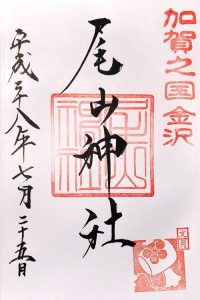 加賀之国金沢
尾山神社
平成二十八年七月二十五日
文月